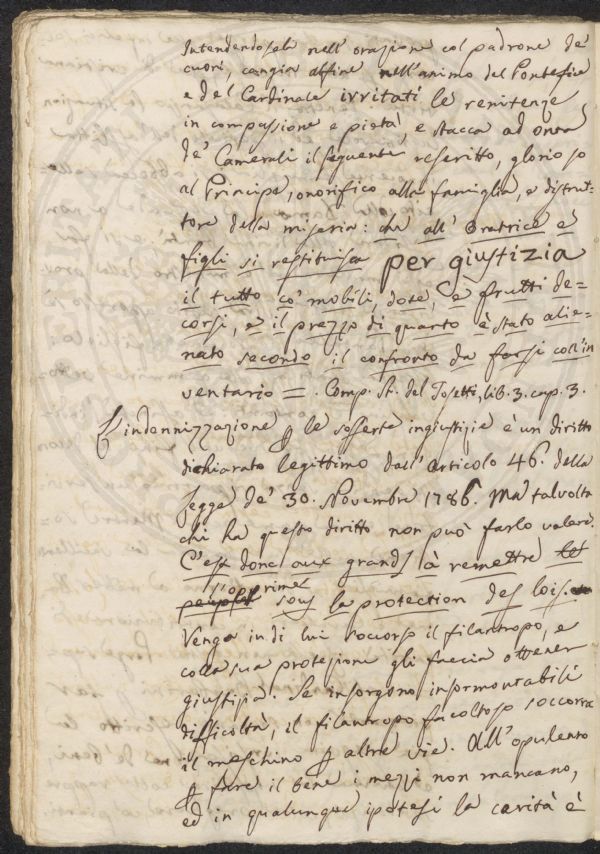 Intendendosela nell' orazione col padrone de'
cuori, cangia alfine nell'animo del Pontefice
e del Cardinale irritati le renitenze
in compassione e pietà, e stacca ad onta
de' Camerali il seguente rescritto, glorioso
al Principe, onorifico alla famiglia, e distrut-
tore della miseria: che all' Oratrice e
figli si restituisca per giustizia
il tutto co' mobili, dote, e frutti de=
corsi, e il prezzo di quanto è stato alie=
nato secondo il confronto da farsi coll'in
ventario =. Comp. St. del Tosetti, lib. 3. cap. 3.
L'indennizzazione p le sofferte ingiustizie è un diritto
dichiarato legittimo dall'articolo 46. della
Legge de' 30. Novembre 1786. Ma talvolta
chi ha questo diritto non può farlo valere.
C'est donc aux grands à remettre le
s'opprimé
peuple sous la protection des lois.
Venga in di lui soccorso il filantropo, e
colla sua protezione gli faccia ottener
giustizia. Se insorgono insormontabili
difficoltà, il filantropo facoltoso soccorra
il meschino p altre vie. All'opulento
p fare il bene i mezzi non mancano,
ed in qualunque ipotesi la carità è